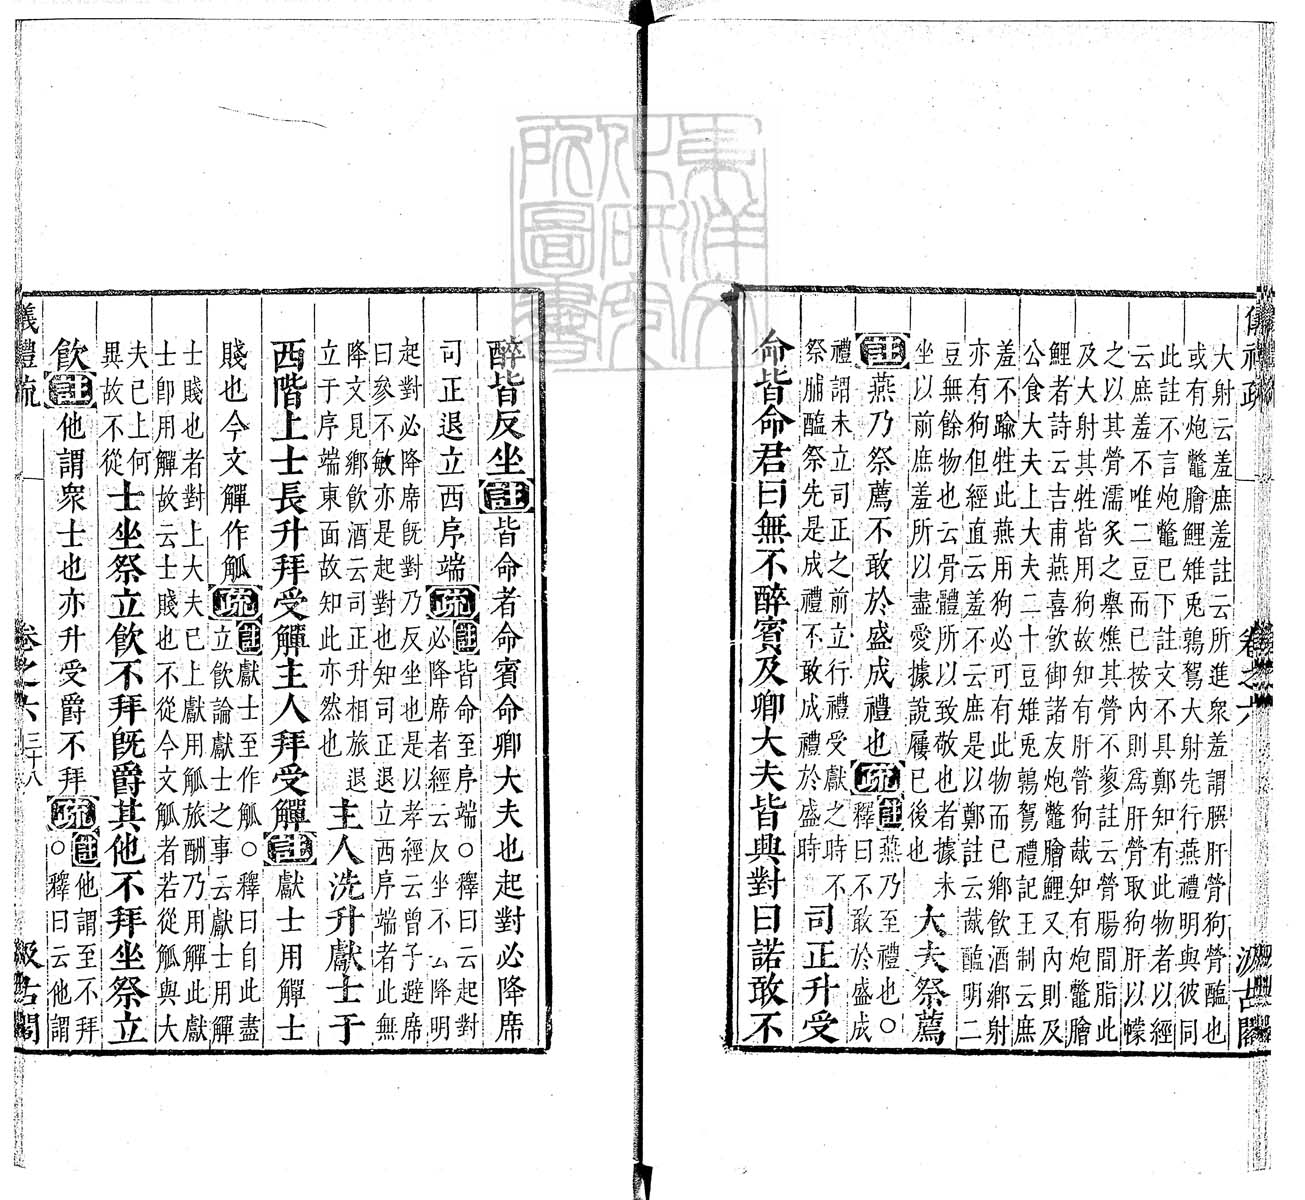 儀禮疏 卷之六 汲古閣
大射云羞庶羞註云所進衆羞謂膷肝膋狗膋醢也
或有炮鼈膾鯉雉兎鶉鴽大射先行燕禮明與彼同
此註不言炮鼈已下註文不具鄭知有此物者以經
云庶羞不唯二豆而已按内則爲肝膋取狗肝以幪
之以其膋濡炙之舉燋其膋不蓼註云膋腸間脂此
及大射其牲皆用狗故知有肝膋狗胾知有炮鼈膾
鯉者詩云吉甫燕喜飲御諸友炮鼈膾鯉又内則及
公食大夫上大夫二十豆雉兎鶉鴽禮記王制云庶
羞不踰牲此燕用狗必可有此物而已鄉飲酒鄉射
亦有狗但經直云羞不云庶是以鄭註云胾醢明二
豆無餘物也云骨體所以致敬也者據未
坐以前庶羞所以盡愛據說屨已後也
大夫祭薦
註燕乃祭薦不敢於盛成禮也疏
註燕乃至禮也○
釋曰不敢於盛成
禮謂未立司正之前立行禮受獻之時不
祭脯醢祭先是成禮不敢成禮於盛時
司正升受
命皆命君曰無不醉賓及卿大夫皆興對曰諾敢不
醉皆反坐註皆命者命賓命卿大夫也起對必降席
司正退立西序端疏
註皆命至序端○釋曰云起對
必降席者經云反坐不云降明
起對必降席既對乃反坐也是以孝經云曾子避席
曰參不敏亦是起對也知司正退立西序端者此無
降文見鄉飲酒云司正升相旅退
立于序端東面故知此亦然也
主人洗升獻士于
西階上士長升拜受觶主人拜受觶註獻士用觶士
賤也今文觶作觚疏
註獻士至作觚○釋曰自此盡
立飲論獻士之事云獻士用觶
士賤也者對上大夫已上獻用觚旅酬乃用觶此獻
士卽用觶故云士賤也不從今文觚者若從觚與大
夫已上何
異故不從
士坐祭立飲不拜旣爵其他不拜坐祭立
飲註他謂衆士也亦升受爵不拜疏
註他謂至不拜
○釋曰云他謂
儀禮疏 卷之六 三十八 汲古閣
東洋文化研究所圖書